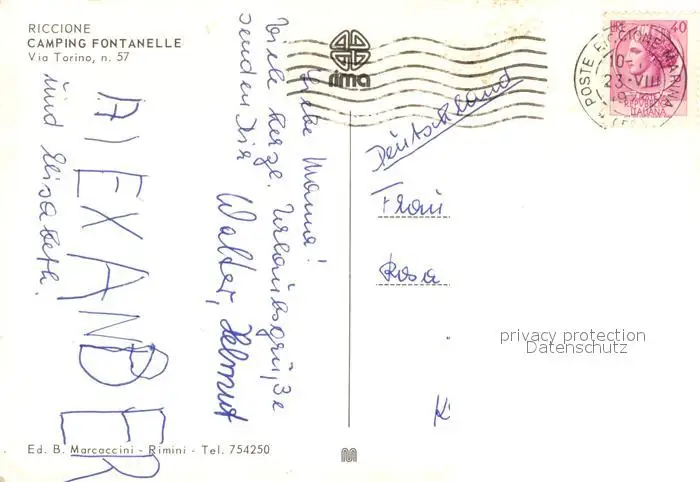 RICCIONE
CAMPING FONTANELLE
Via Torino, n. 57
rima
LIRE 40
POSTE RICCIONE MARINA
10-
23-VIII
ITALIANA
Liebe Mama!
Viele herzl. Urlaubsgrüße
senden Dir
Walter, Helmut
AlEXANDER
und Elisabeth.
Deutschland
Frau
Rosa
K
privacy protection
Datenschutz
Ed. B. Marcaccini - Rimini - Tel. 754250